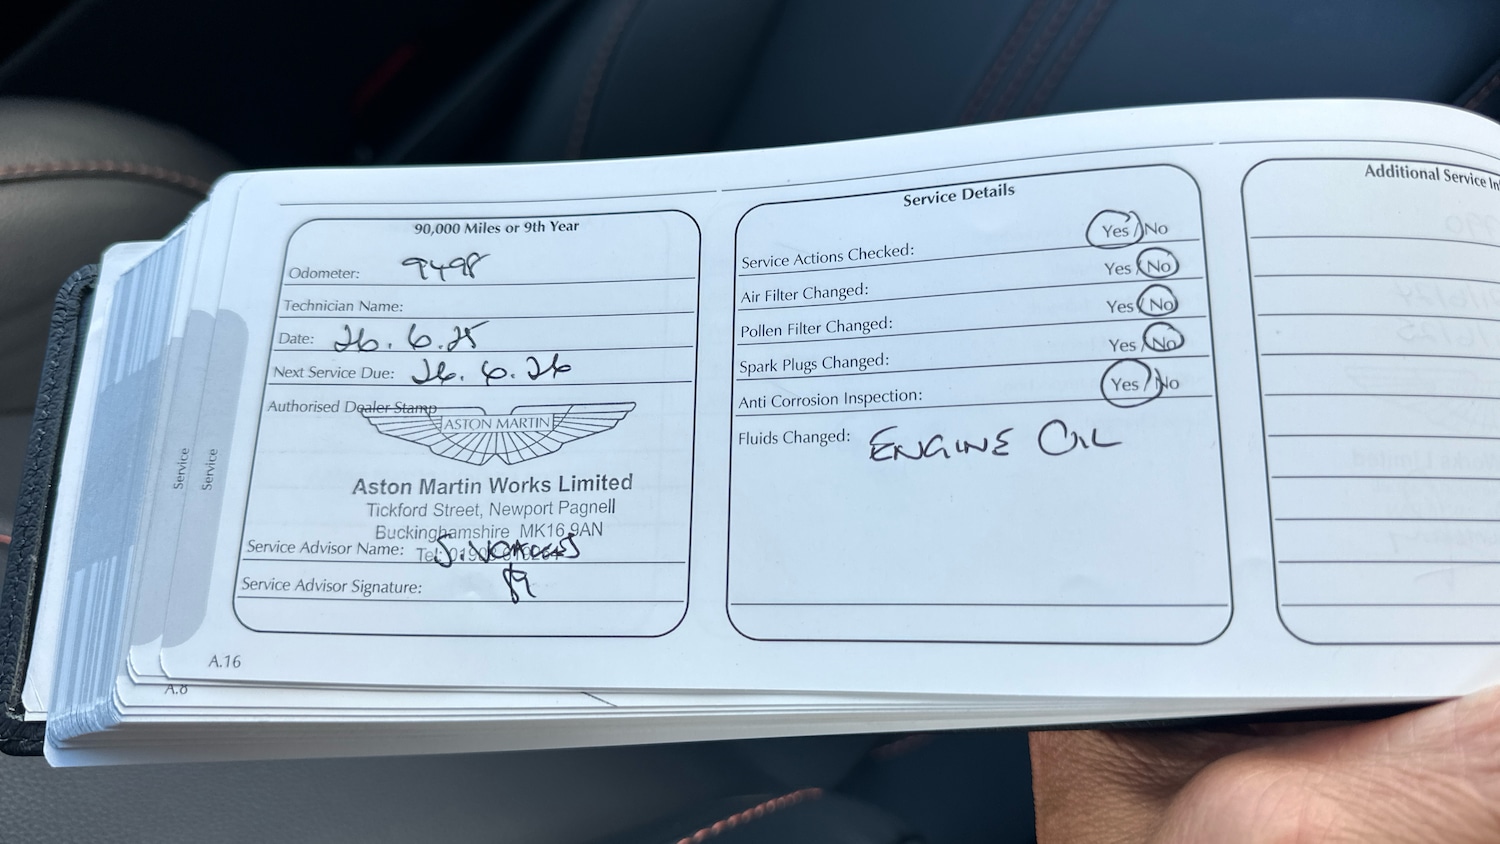 90,000 Miles or 9th Year
Odometer: 9498
Technician Name:
Date: 26.6.25
Next Service Due: 26.6.26
Authorised Dealer Stamp
ASTON MARTIN
Aston Martin Works Limited
Tickford Street, Newport Pagnell
Buckinghamshire MK16 9AN
Service Advisor Name:
Tel:
Service Advisor Signature:
A.16
A.8
Service
Service
Service Details
Service Actions Checked: Yes / No
Air Filter Changed: Yes / No
Pollen Filter Changed: Yes / No
Spark Plugs Changed: Yes / No
Anti Corrosion Inspection: Yes / No
Fluids Changed: ENGINE OIL
Additional Service